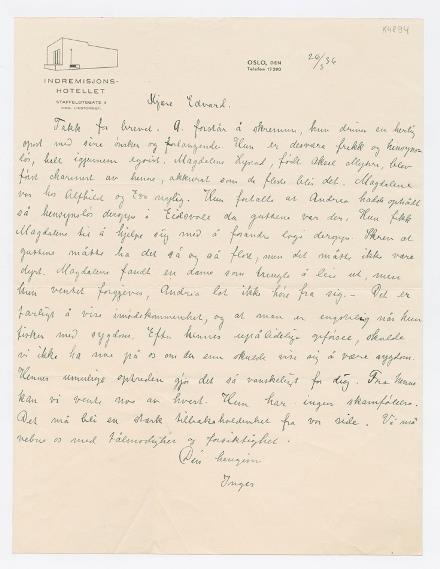 K4894
INDREMISJONS-
HOTELLET
STAFFELDTSGATE 4
OSLO, DEN 26/3 36
Telefon 17390
Kjære Edvard.
Takk for brevet. A. forstår å skremme, hun driver en
med sine ønsker og forlangende. Hun er desverre frekk og
løs, helt igjennem egoist. Magdalene født Aksel blev
først charmert av henne, akkurat som de fleste blir det. Magdalene
var hos Alfhild og nylig. Hun fortalte at Andrea hadde optrått
så hensynsløs dengang i Eidsvolle da guttene var der. Hun fikk
Magdalene til å hjelpe sig med å forandre dengang. Skrev at
guttene måtte ha det så og så flott, men det måtte ikke være
dyrt. Magdalene fandt en dame som trengte å leie ut, men
hun ventet forgjeves, Andrea lot ikke høre fra sig. – Det er
farligt å vise imøtekommenhet, og at man er engstelig når hun
fisker med sygdom. Efter hennes upålidelige skulde
vi ikke ha noe på os om du enn skulde vise sig å være sygdom.
Hennes umulige optreden gjør det så vanskeligt for dig. Fra henne
kan vi vente noe av hvert. Hun har ingen skamfølelse.
Det må bli en sterk tilbakeholdenhet fra vor side. Vi må
vebne os med tålmodighet og forsiktighet.
Din hengivne
Inger